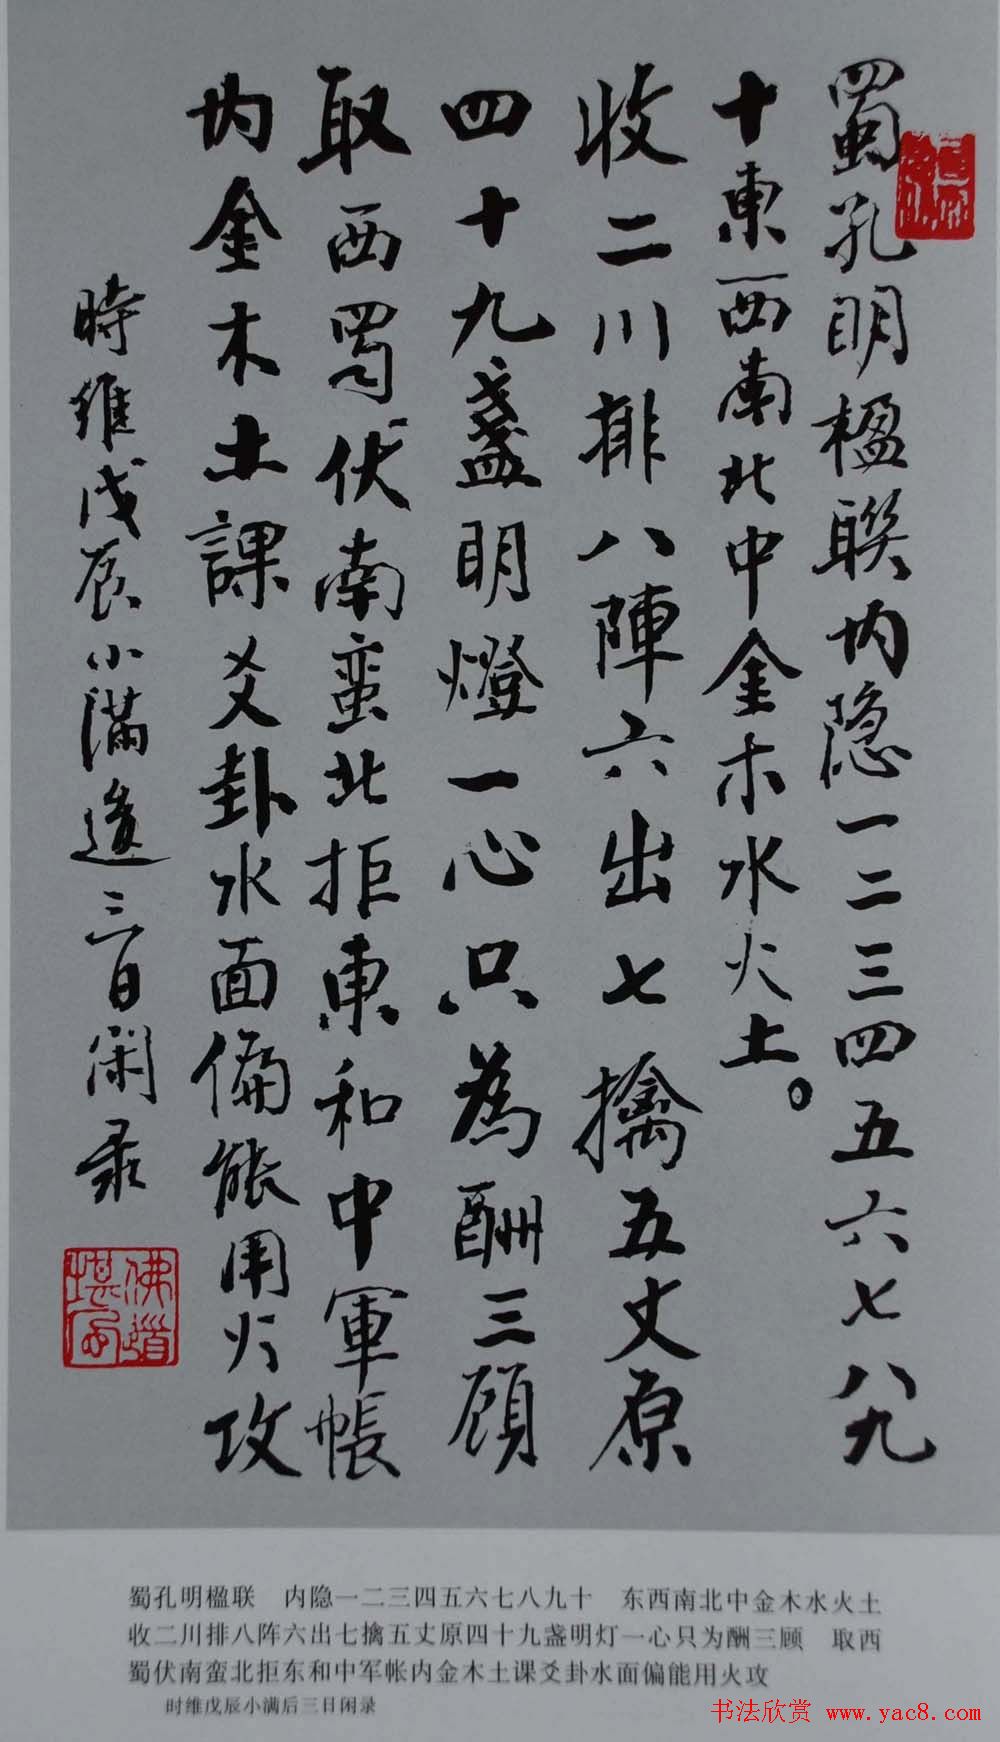 蜀孔明楹联内隐一二三四五六七八九
十東西南北中金木水火土。
收二川排八陣六出七擒五丈原
四十九盏明燈一心只為酬三顾
取西蜀伏南蛮北拒東和中軍帳
内金木土課爻卦水面偏能用火攻
時維戊辰小满後三日闲录
蜀孔明楹联　内隐一二三四五六七八九十　东西南北中金木水火土
收二川排八阵六出七擒五丈原四十九盏明灯一心只为酬三顾　取西
蜀伏南蛮北拒东和中军帐内金木土课爻卦水面偏能用火攻
时维戊辰小满后三日闲录
书法欣赏 www.yac8.com